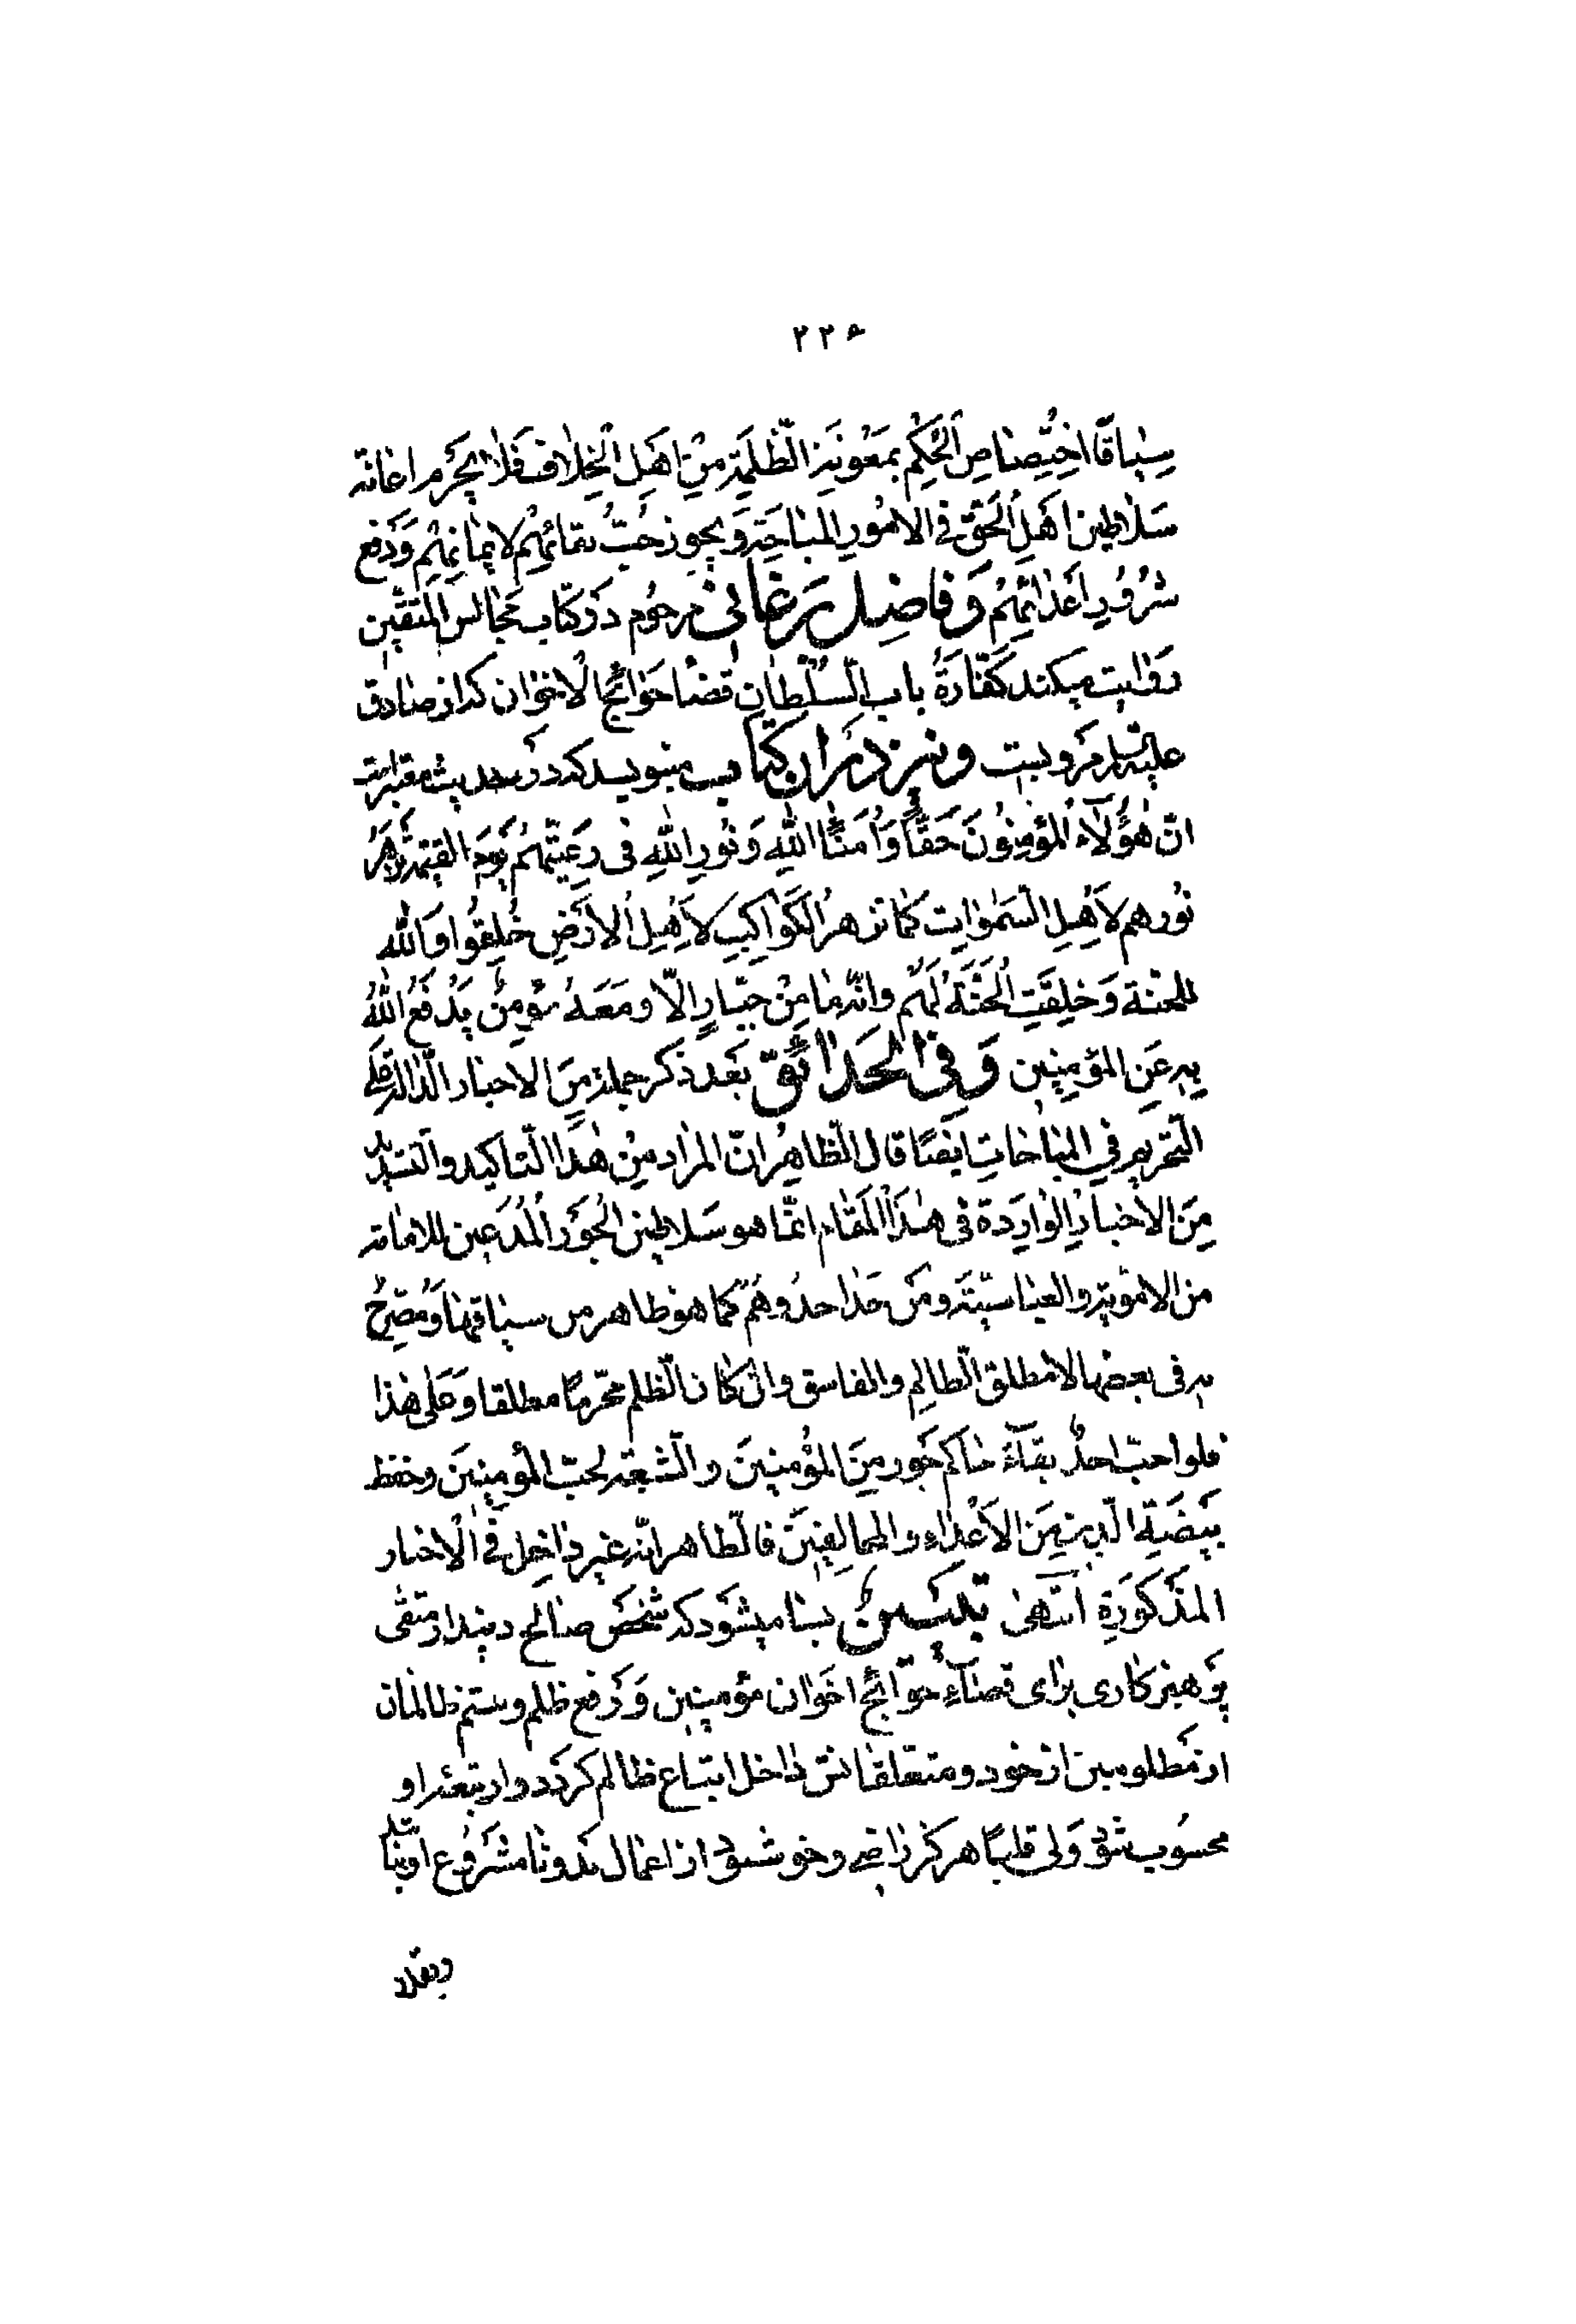 ۲۲۶
سِیاقًا اخْتِصاصِ الْحُکْمِ بمَعُونَةِ الظَّلَمَةِ مِنْ اَهْلِ الْخِلافِ فَلا یَحْرُم اعانَة
سَلاطین اَهْلِ الْحَقِّ فی الامُورِ المُباحَةِ وَ یجوز حُبُّ بقائهِمْ لایمانِهِمْ وَ دَفْعِ
شُرُورِ اَعْدائِهِمْ وَ فاضِل بَرَغانی مرحُوم دَر کتاب مَجالس المُتّقین
روایت میکند کَفّارَةُ باب السُّلْطان قَضاءُ حَوائجِ الْاخوان که از صادق
علیه السلام مرویست و نیز در آن کتاب مینویسد که در حدیث معتبر است
انّ هؤُلآءِ الْمُؤمِنُونَ حَقًّا وَ اُمَنآءُ اللّهِ وَ نُورِ اللّهِ فی رَعیَّتِهُمْ یَوْمَ القیٰمَة یَزْهَرُ
نُورهم لاَهْلِ السَّمٰوات کَما تزهرُ الکَواکِبِ لاَهْلِ الْاَرْضِ خُلِقُوا وَاللّهِ
للجنة وَ خلِقَتِ الْجَنَّةُ لَهُمْ وانّه ما مِنْ جبّارٍ اِلّا و مَعَهُ مؤمِنٌ یَدْفَعُ اللّهُ
بِهِ عَنِ المؤمِنین وَ فِی الْحَدائِق بَعد ذکر جملة مِنَ الاخبار الدّالة علی
التّحریم فی المباحاتِ ایضًا قال الظّاهِرُ انّ المراد مِنْ هٰذَا التّاکید والتشدید
مِنَ الاخبارِ الوارِدة فی هٰذَا الْمَقام انّما هو سَلاطین الْجَوْرِ الْمُدّعین للامامة
من الامویّة والعباسیّة وَ مَن حَذا حذوهُمْ کما هو ظاهر من سیاقها وَ مُصَرِّحٌ
به فی بعضها لا مُطلق الظّالم والفاسق وان کان الظّلم محرّمًا مطلقا وَ عَلی هٰذا
فلو احبّ احدٌ بقآءَ حاکم جَور مِنَ المُؤْمِنینَ والشّیعَة لحبّ المؤمِنینَ و حفظ
بَیضَةِ الدّینِ مِنَ الاَعْداءِ والمخالِفینَ فالظاهر انّه غیر داخِل فی الْاخبار
المَذْکُورَةِ انتهیٰ بسا میشود که شخَص صالح دیندار متقی
پرهیزکاری برای قضآءِ حَوآئج اخوان مؤمنین وَ رفع ظلم و ستم ظالمان
از مظلومین از خود و متعلقانش داخل اتباع ظالم گردد و از تبعهٔ او
محسُوب شود وَلی قلبًا هرگز راضی و خوشنود از اعمال بد و نامشروع او نباشد